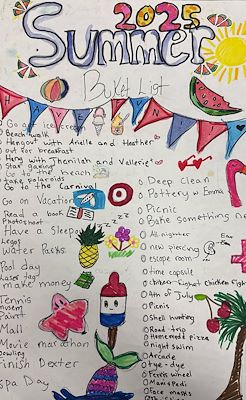 2025
Summer
Bucket List
Go get ice cream
Beach walk
Hangout with Arielle and Heather
out for breakfast
Hang with Thanilah and Vallerie
Star gazing
Go to the beach
take polaroids
Go to the Carnival
Go on Vacation
Read a book
Photoshoot
Have a Sleepov
Legos
Water Parks
Pool day
Laser tag
make money
Tennis
museum
Paint
Mall
Movie marathon
Bowling
Finish Dexter
Spa Day
Deep Clean
Pottery w Emma
Picnic
Bake Something n
All nighter
new piercing
Ear
escape room
time capsule
chicken fight
chicken fight
4th of July
Picnic
Shell hunting
Road trip
Homemade pizza
night swim
Arcade
tye-dye
Ferris wheel
Mani Pedi
Face masks